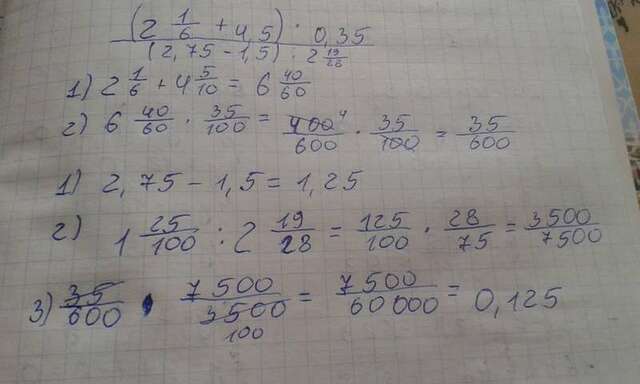 (2 1/6 + 4,5) · 0,35
(2,75 - 1,5) : 2 19/28
1) 2 1/6 + 4 5/10 = 6 40/60
2) 6 40/60 · 35/100 = 400 4/600 · 35/100 = 35/600
1) 2,75 - 1,5 = 1,25
2) 1 25/100 : 2 19/28 = 125/100 · 28/75 = 3500/7500
3) 35/600 · 7500/3500 = 7500/60000 = 0,125
100